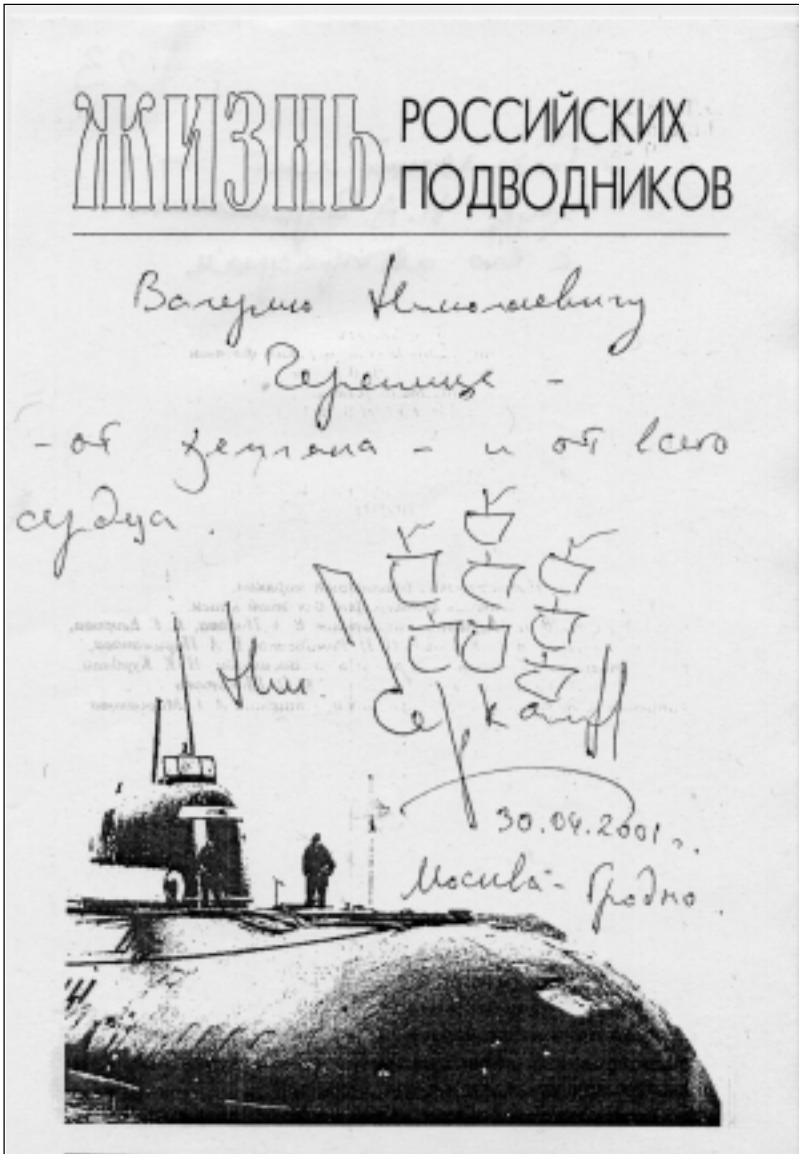 ЖИЗНЬ РОССИЙСКИХ
ПОДВОДНИКОВ
Валерию Николаевичу
Черепице -
- от земляка - и от всего
сердца.
Ник.
Черкашин
30.04.2001 г.
Москва - Гродно.